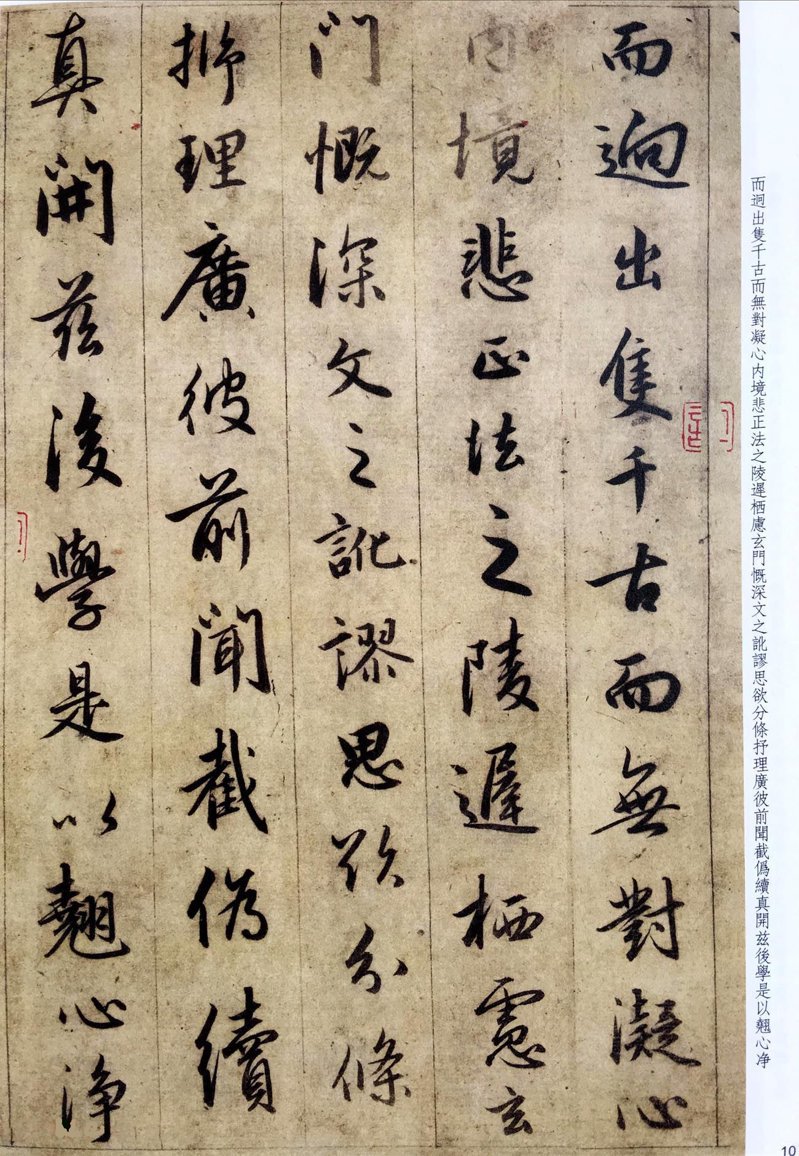 而迥出隻千古而無對凝心
内境悲正法之陵遲栖慮玄
門慨深文之訛謬思欲分條
抒理廣彼前聞截偽續
真開兹後學是以翹心净
而迥出隻千古而無對凝心内境悲正法之陵遲栖慮玄門慨深文之訛謬思欲分條抒理廣彼前聞截僞續真開兹後學是以翹心净
10